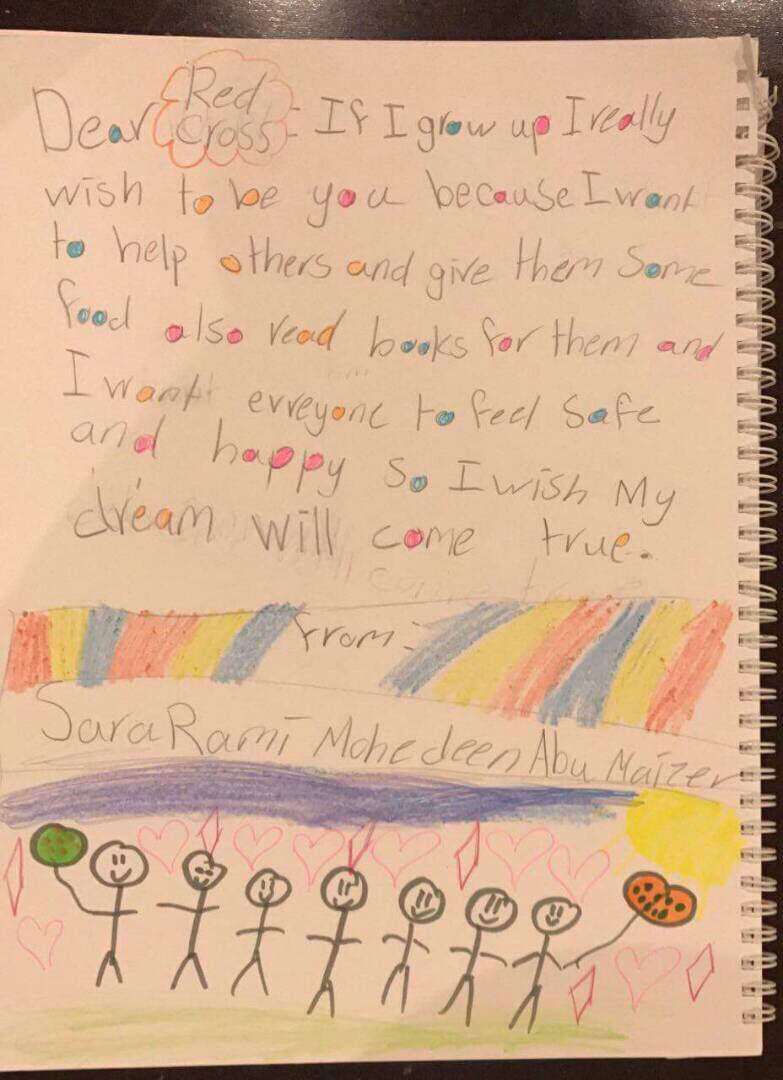 Dear Red Cross: If I grow up I really
wish to be you because I want
to help others and give them Some
food also read books for them and
I want evreyone to feel safe
and happy so I wish My
dream will come true.
from:
Sara Rami Mohedeen Abu Maizer